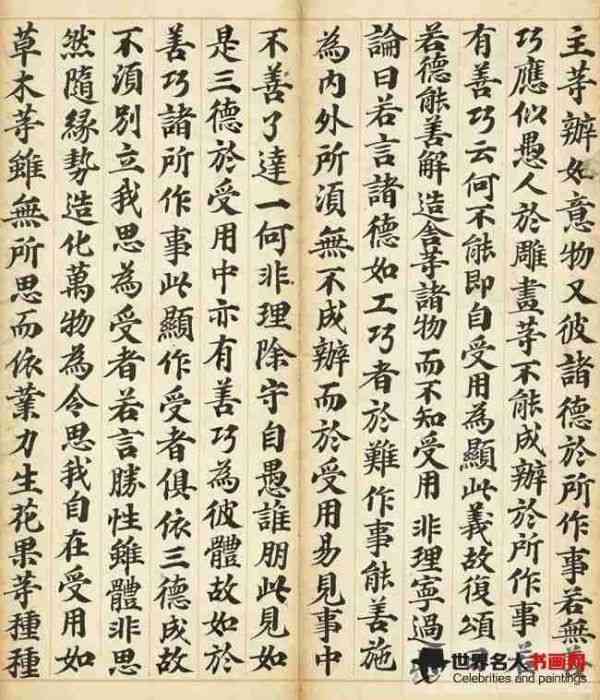 主等辦如意物又彼諸德於所作事若無
巧應似愚人於雕畫等不能成辦於所作事
有善巧云何不能即自受用為顯此義故復頌
若德能善解造舍等諸物而不知受用 非理寧過
論曰若言諸德如工巧者於難作事能善施
為內外所須無不成辦而於受用易見事中
不善了達一何非理除守自愚誰朋此見如
是三德於受用中亦有善巧為彼體故如於
善巧諸所作事此顯作受者俱依三德成故
不須別立我思為受者若言勝性雖體非思
然隨緣勢造化萬物為令思我自在受用如
草木等雖無所思而依業力生花果等種種
世界名人书画网
Celebrities and paintings